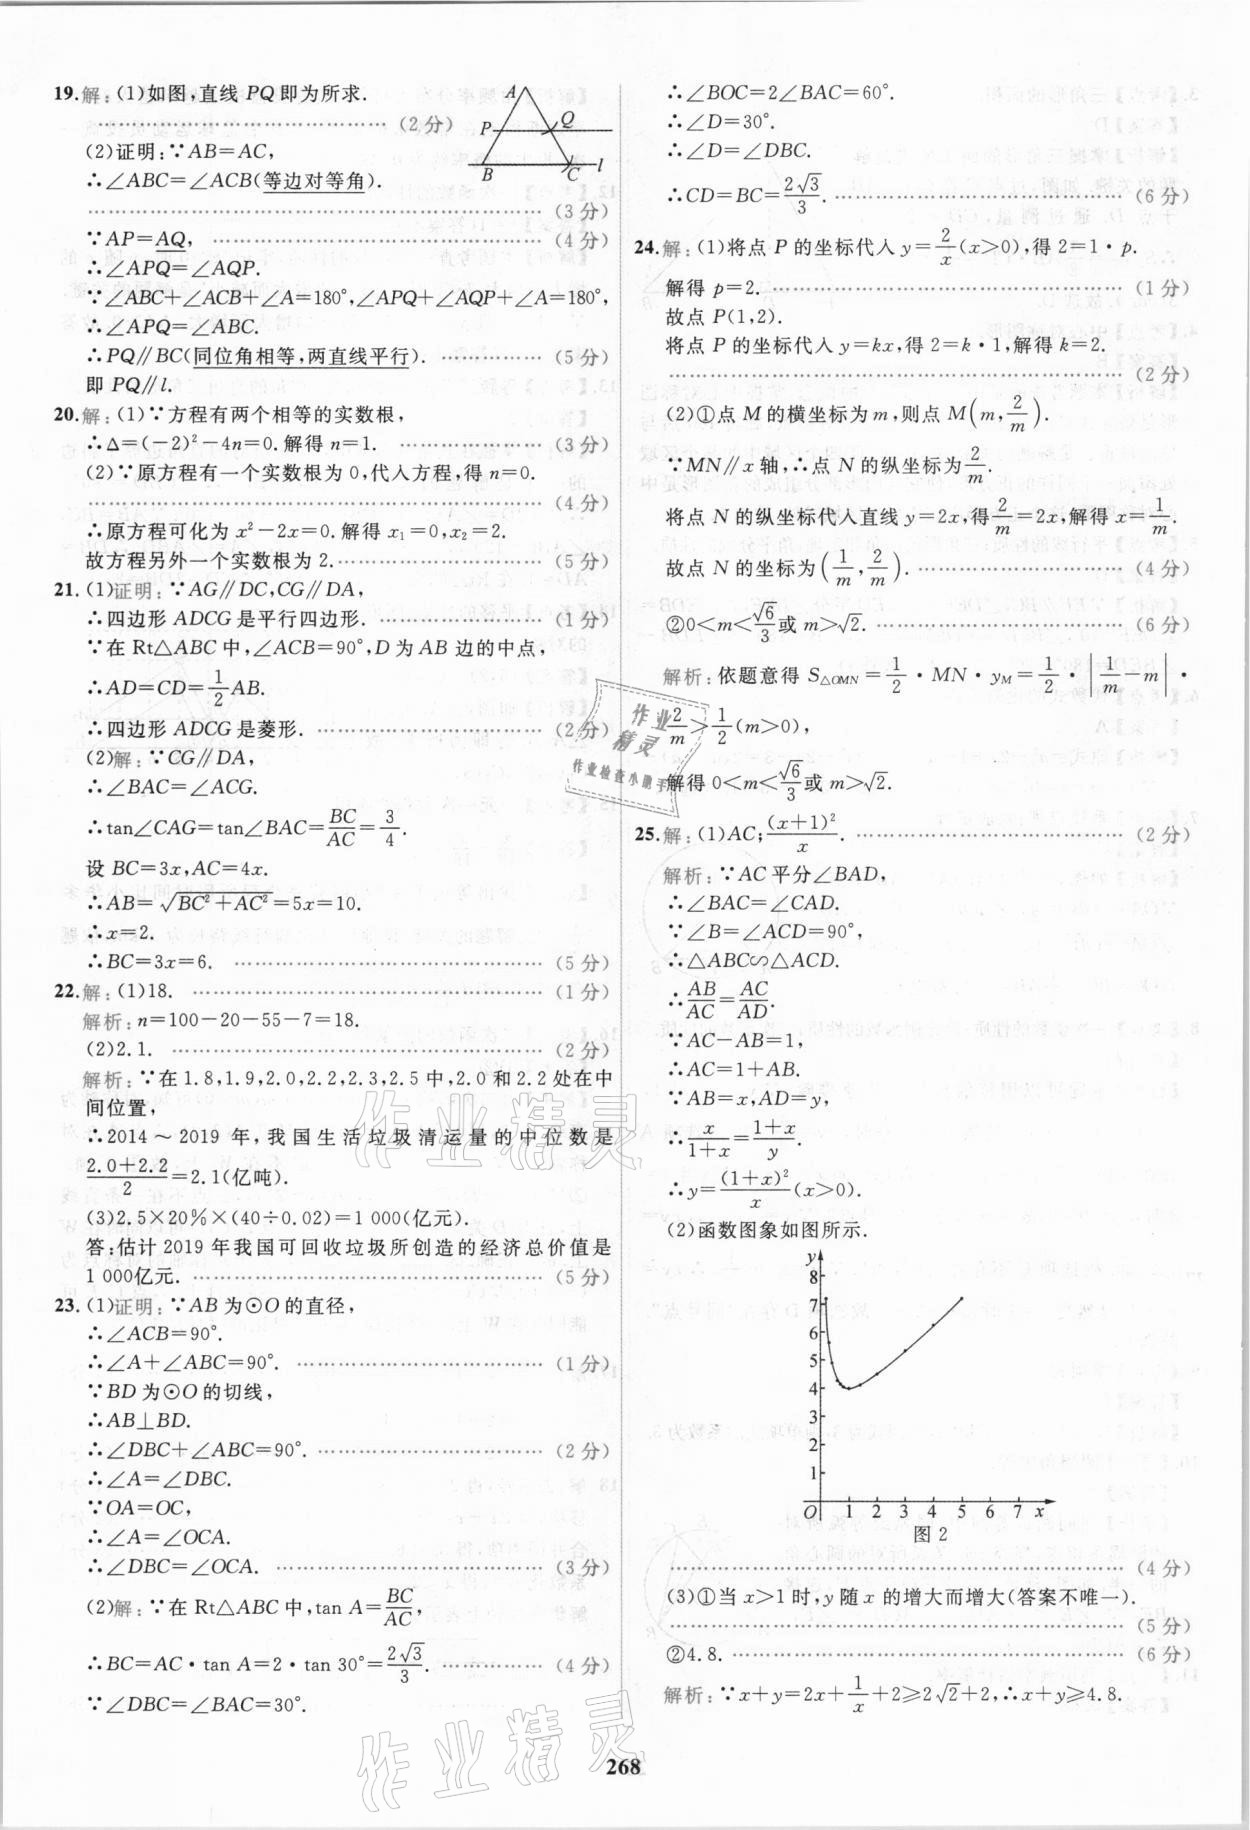 19.解:(1)如图,直线 PQ 即为所求.
(2分)
A
P Q
B C l
(2)证明:∵AB=AC,
∴∠ABC=∠ACB(等边对等角).
(3分)
∵AP=AQ, (4分)
∴∠APQ=∠AQP.
∵∠ABC+∠ACB+∠A=180°,∠APQ+∠AQP+∠A=180°,
∴∠APQ=∠ABC.
∴PQ∥BC(同位角相等,两直线平行). (5分)
即 PQ∥l.
20.解:(1)∵方程有两个相等的实数根,
∴Δ=(-2)²-4n=0.解得 n=1. (3分)
(2)∵原方程有一个实数根为 0,代入方程,得 n=0.
(4分)
∴原方程可化为 x²-2x=0.解得 x₁=0,x₂=2.
故方程另外一个实数根为 2. (5分)
21.(1)证明:∵AG∥DC,CG∥DA,
∴四边形 ADCG 是平行四边形. (1分)
∵在 Rt△ABC 中,∠ACB=90°,D 为 AB 边的中点,
∴AD=CD=1/2AB.
∴四边形 ADCG 是菱形. (2分)
(2)解:∵CG∥DA,
∴∠BAC=∠ACG.
∴tan∠CAG=tan∠BAC=BC/AC=3/4.
设 BC=3x,AC=4x.
∴AB=√(BC²+AC²)=5x=10.
∴x=2.
∴BC=3x=6. (5分)
22.解:(1)18. (1分)
解析:n=100-20-55-7=18.
(2)2.1. (2分)
解析:∵在 1.8,1.9,2.0,2.2,2.3,2.5 中,2.0 和 2.2 处在中
间位置,
∴2014～2019 年,我国生活垃圾清运量的中位数是
(2.0+2.2)/2=2.1(亿吨).
(3)2.5×20%×(40÷0.02)=1 000(亿元).
答:估计 2019 年我国可回收垃圾所创造的经济总价值是
1 000亿元. (5分)
23.(1)证明:∵AB 为⊙O 的直径,
∴∠ACB=90°.
∴∠A+∠ABC=90°. (1分)
∵BD 为⊙O 的切线,
∴AB⊥BD.
∴∠DBC+∠ABC=90°. (2分)
∴∠A=∠DBC.
∵OA=OC,
∴∠A=∠OCA.
∴∠DBC=∠OCA. (3分)
(2)解:∵在 Rt△ABC 中,tan A=BC/AC,
∴BC=AC·tan A=2·tan 30°=2√3/3. (4分)
∵∠DBC=∠BAC=30°,
∴∠BOC=2∠BAC=60°.
∴∠D=30°.
∴∠D=∠DBC.
∴CD=BC=2√3/3. (6分)
24.解:(1)将点 P 的坐标代入 y=2/x(x>0),得 2=1·p.
解得 p=2. (1分)
故点 P(1,2).
将点 P 的坐标代入 y=kx,得 2=k·1,解得 k=2.
(2分)
(2)①点 M 的横坐标为 m,则点 M(m,2/m).
∵MN∥x 轴,∴点 N 的纵坐标为2/m.
将点 N 的纵坐标代入直线 y=2x,得2/m=2x,解得 x=1/m.
故点 N 的坐标为(1/m,2/m). (4分)
②0<m<√6/3或 m>√2. (6分)
解析:依题意得 S△OMN=1/2·MN·yM=1/2·|1/m-m|·
2/m>1/2(m>0),
解得 0<m<√6/3或 m>√2.
25.解:(1)AC;(x+1)²/x. (2分)
解析:∵AC 平分∠BAD,
∴∠BAC=∠CAD.
∵∠B=∠ACD=90°,
∴△ABC∽△ACD.
∴AB/AC=AC/AD.
∵AC-AB=1,
∴AC=1+AB.
∵AB=x,AD=y,
∴x/(1+x)=(1+x)/y.
∴y=(1+x)²/x(x>0).
(2)函数图象如图所示.
y
8
7
6
5
4
3
2
1
O 1 2 3 4 5 6 7 x
图 2
(4分)
(3)①当 x>1 时,y 随 x 的增大而增大(答案不唯一).
(5分)
②4.8. (6分)
解析:∵x+y=2x+1/x+2≥2√2+2,∴x+y≥4.8.
268
作业精灵
作业检查小助手
作业精灵
作业精灵